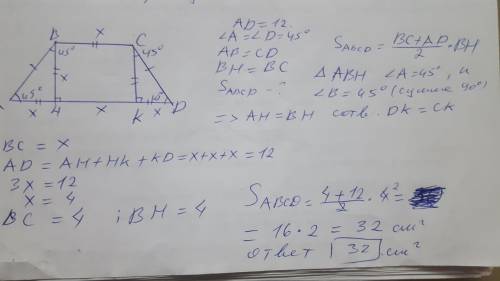 B x C
45° 45°
x
45° 45°
A x H x K x D
AD = 12.
∠A = ∠D = 45°
AB = CD
BH = BC
S_ABCD - ?
S_ABCD = (BC + AD)/2 · BH
△ ABH ∠A = 45°, и
∠B = 45° (сумме 90°)
=> AH = BH сотв. DK = CK
BC = x
AD = AH + HK + KD = x + x + x = 12
3x = 12
x = 4
BC = 4 i BH = 4
S_ABCD = (4 + 12)/2 · 4² =
= 16 · 2 = 32 см²
ответ 32 см²